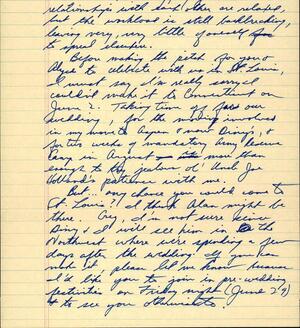 relationships with said other are relaxed,
but the workload is still backbreaking,
leaving very, very little of myself
to spread elsewhere.
Before making the pitch for you &
to celebrate with us in St. Louis,
I must say I'm really sorry I
couldn't make it to Connecticut on
June 2. Taking time off for our
wedding, for the moving involved
in my move to Aspen & now
for two weeks of mandatory Army Reserve
Camp in August more than
enough to the of Uncle Joe
patience with me.
But... any chance you could come to
St. Louis? I think Alan might be
there. I'm not sure
& I will see him in the
Northwest where we're spending a few
days after the wedding. If you can
make it please let me know because
I'd like you to join in pre-wedding
festivities on Friday night (June 29)
to see you